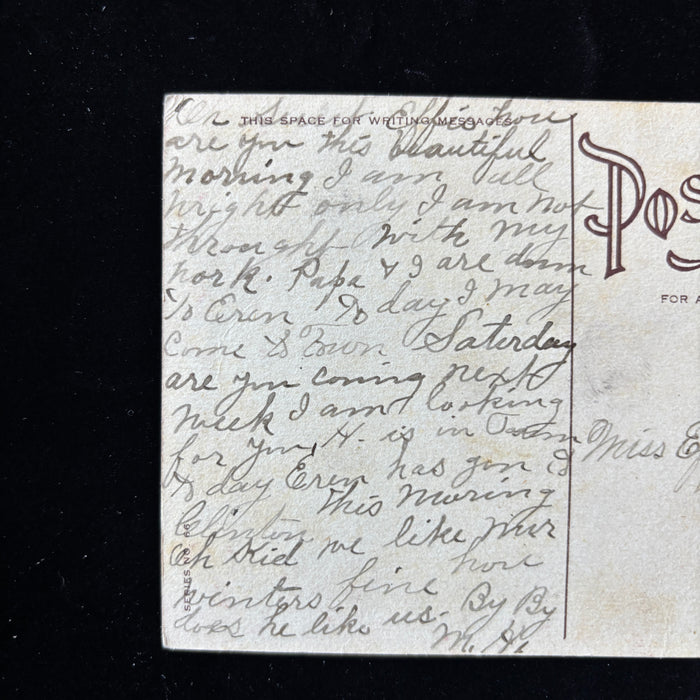 THIS SPACE FOR WRITING MESSAGES
Effie how
are you this beautiful
morning I am all
right only I am not
through with my
work. Papa & I are down
To Eren To day I may
Come to Town Saturday
are you coming next
week I am looking
for you, H. is in Town
To day Eren has gon to
Clinton this moring
Oh Kid we like Mr
Winters fine how
does he like us. By By
M. H.
SERIES NO
POS
FOR A
Miss E